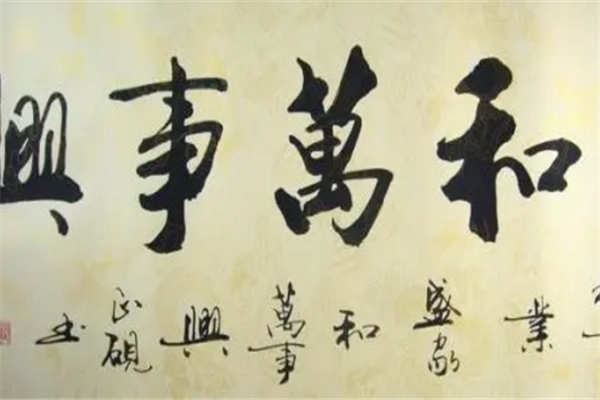 和萬事興
業盛家和萬事興正硯书